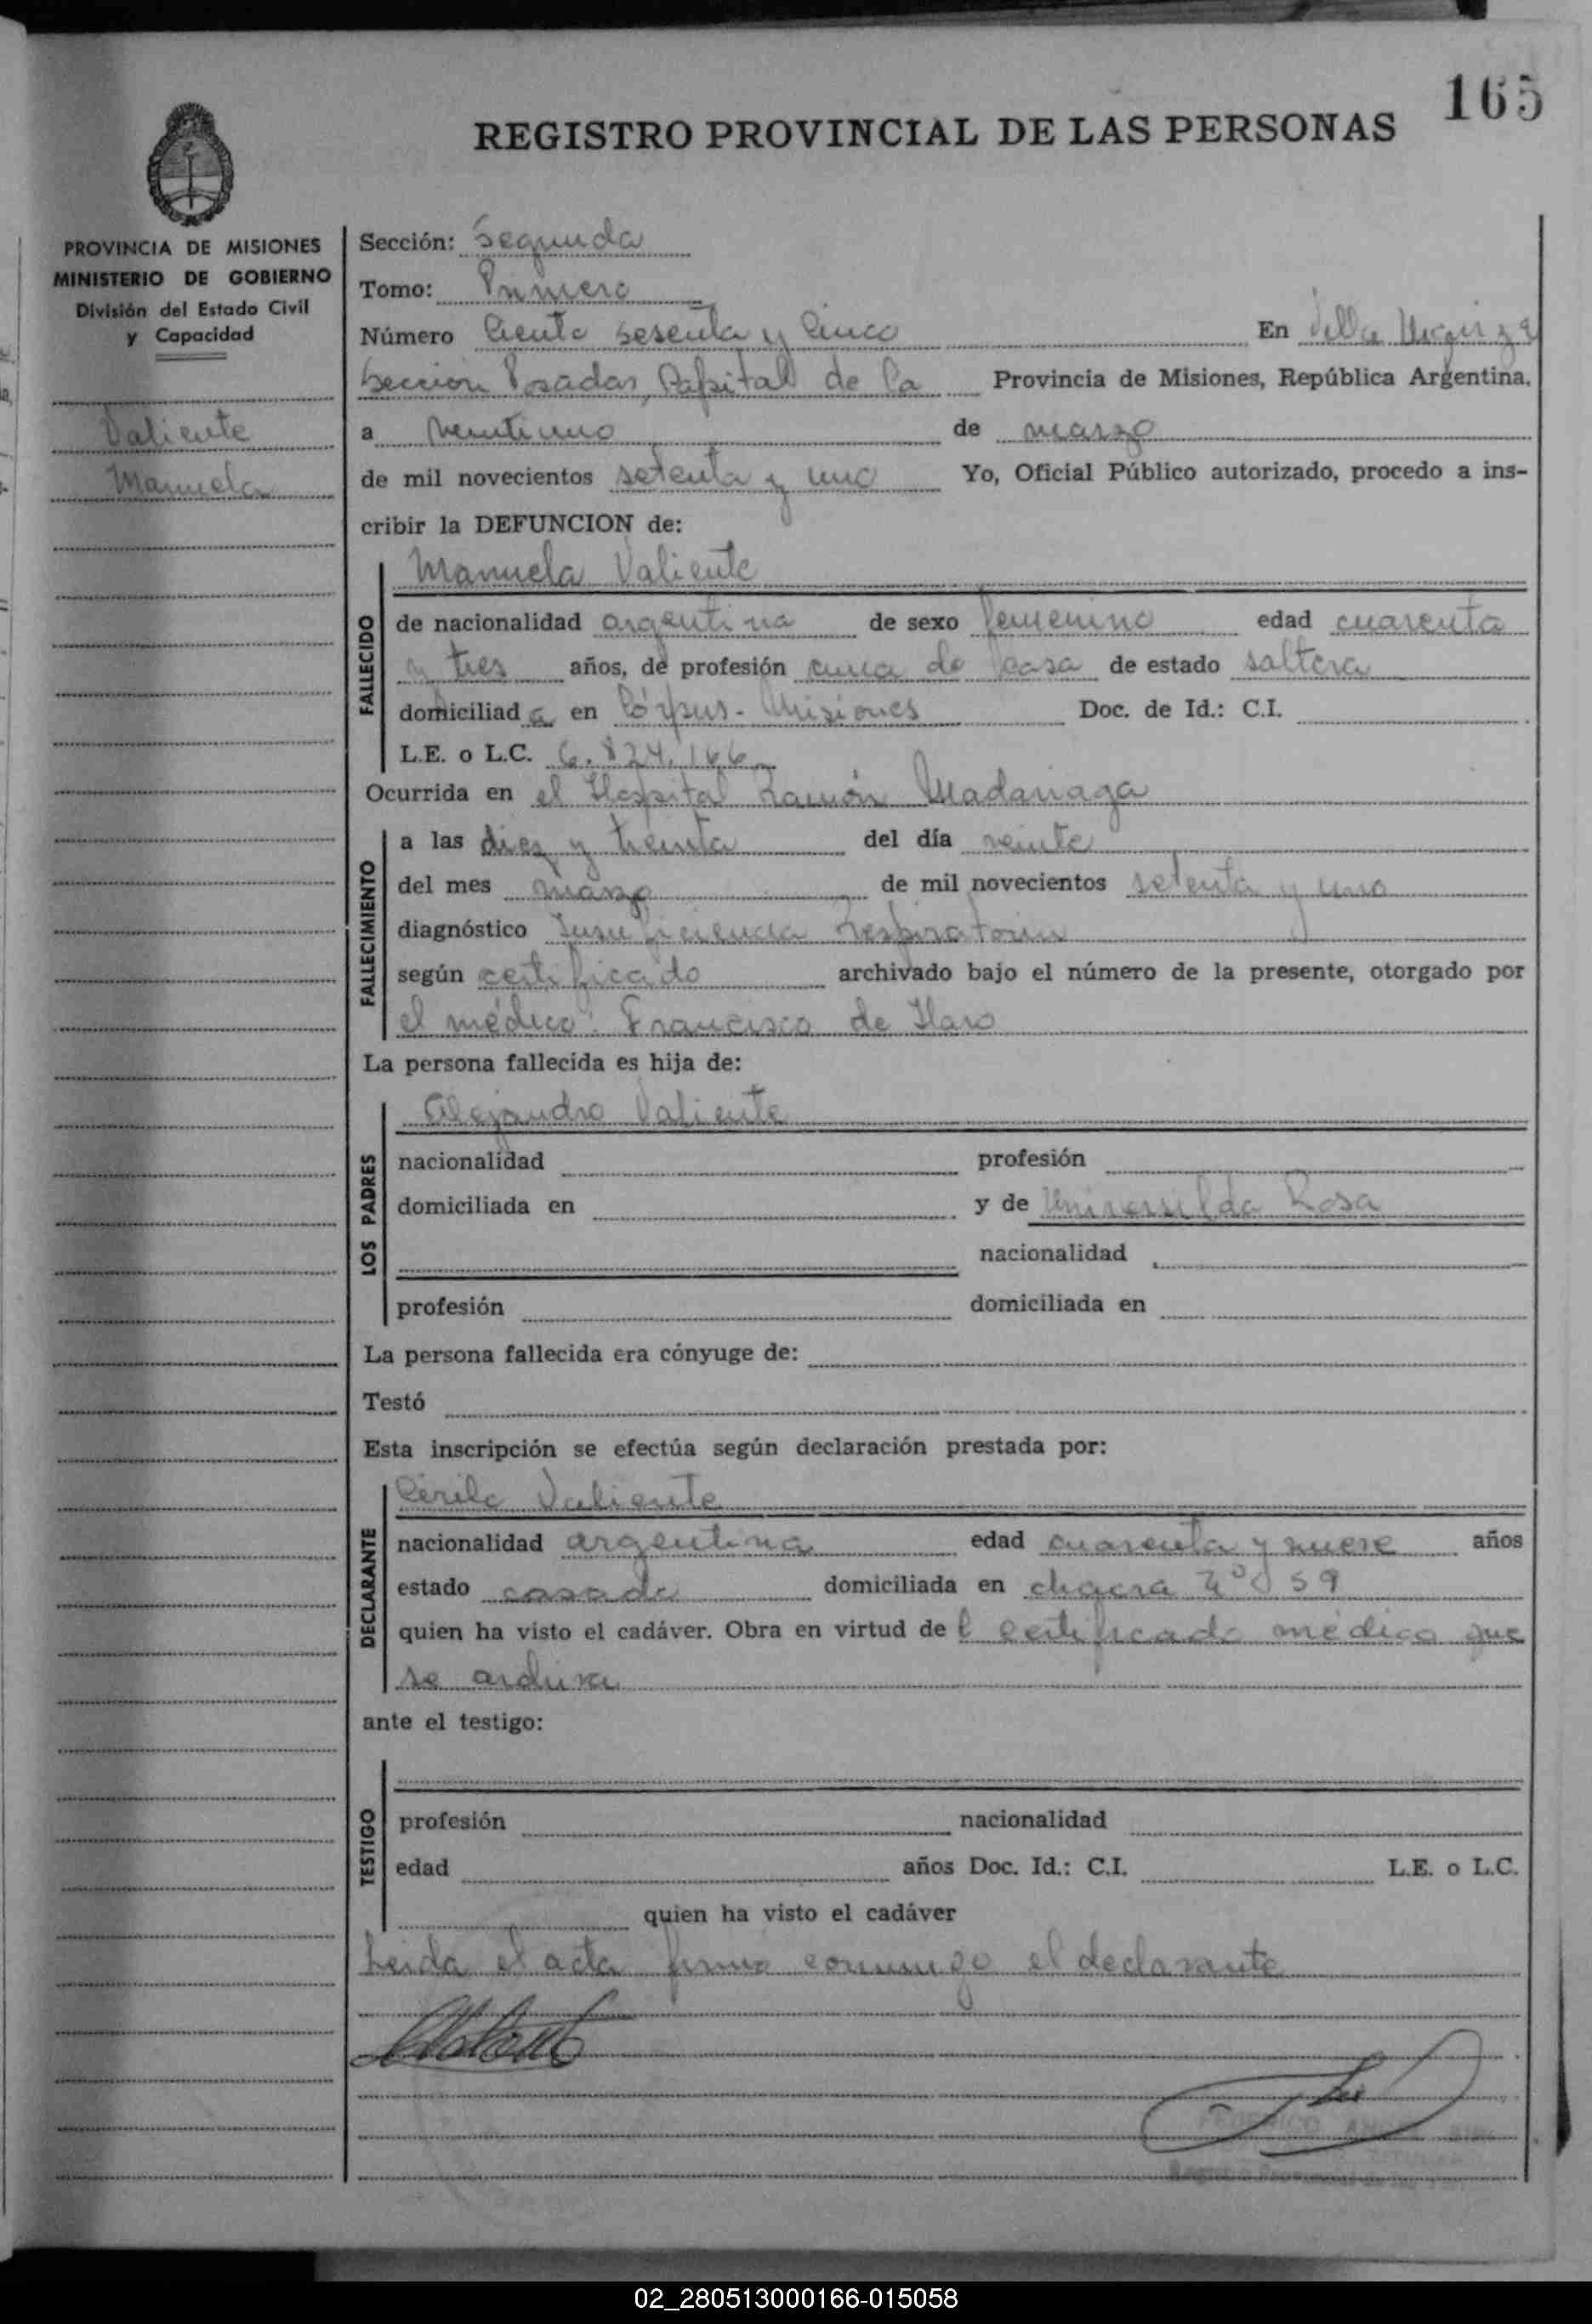 165
REGISTRO PROVINCIAL DE LAS PERSONAS
PROVINCIA DE MISIONES
MINISTERIO DE GOBIERNO
División del Estado Civil
y Capacidad
Valiente
Manuela
Sección: Segunda
Tomo: Primero
Número Ciento sesenta y Cinco En Villa Urquiza
Sección Posadas, Capital de la Provincia de Misiones, República Argentina,
a veintiuno de marzo
de mil novecientos setenta y uno Yo, Oficial Público autorizado, procedo a ins-
cribir la DEFUNCION de:
FALLECIDO
Manuela Valiente
de nacionalidad argentina de sexo femenino edad cuarenta
y tres años, de profesión ama de casa de estado soltera
domiciliada en Córpus - Misiones Doc. de Id.: C.I.
L.E. o L.C. 6.824.166
Ocurrida en el Hospital Ramón Madariaga
FALLECIMIENTO
a las diez y treinta del día veinte
del mes marzo de mil novecientos setenta y uno
diagnóstico Insuficiencia Respiratoria
según certificado archivado bajo el número de la presente, otorgado por
el médico: Francisco de Haro
La persona fallecida es hija de:
LOS PADRES
Alejandro Valiente
nacionalidad profesión
domiciliada en y de Universilda Rosa
nacionalidad
profesión domiciliada en
La persona fallecida era cónyuge de:
Testó
Esta inscripción se efectúa según declaración prestada por:
DECLARANTE
Cirilo Valiente
nacionalidad argentina edad cuarenta y nueve años
estado casado domiciliada en chacra Nº 59
quien ha visto el cadáver. Obra en virtud del certificado médico que
se archiva
ante el testigo:
TESTIGO
profesión nacionalidad
edad años Doc. Id.: C.I. L.E. o L.C.
quien ha visto el cadáver
Leida el acta firma conmigo el declarante
02_280513000166-015058